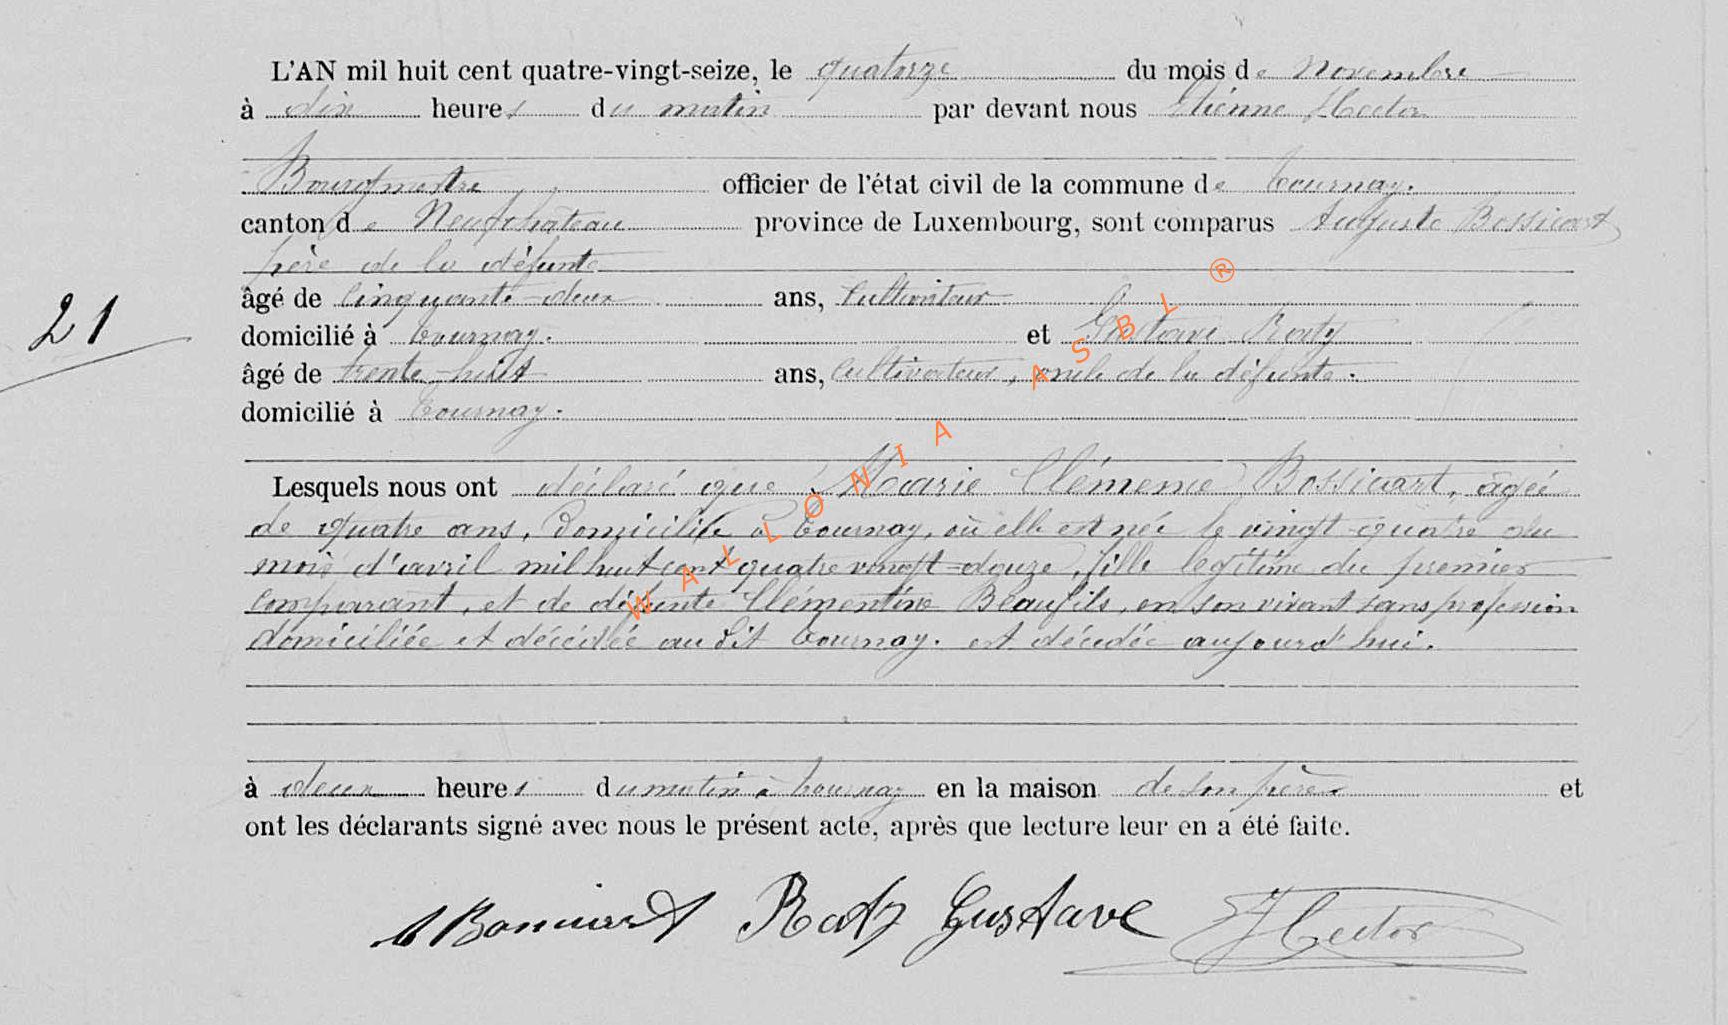 L'AN mil huit cent quatre-vingt-seize, le quatorze du mois de Novembre
à dix heures du matin par devant nous Etienne Hector
Bourgmestre officier de l'état civil de la commune de Tournay.
canton de Neufchâteau province de Luxembourg, sont comparus Auguste Bossicart
père de la défunte
âgé de cinquante-deux ans, cultivateur
21
domicilié à Tournay. et Gustave Raty
âgé de trente-huit ans, cultivateur, oncle de la défunte.
domicilié à Tournay.
Lesquels nous ont déclaré que Marie Clémence Bossicart, âgée
de quatre ans, domiciliée à Tournay, où elle est née le vingt-quatre du
mois d'avril mil huit cent quatre vingt-douze, fille légitime du premier
comparant, et de défunte Clémentine Beaufils, en son vivant sans profession
domiciliée et décédée au dit Tournay. est décédée aujourd'hui.
à deux heures du matin à Tournay en la maison de son père et
ont les déclarants signé avec nous le présent acte, après que lecture leur en a été faite.
Raty Gustave Hector
WALLONIA ASBL ®